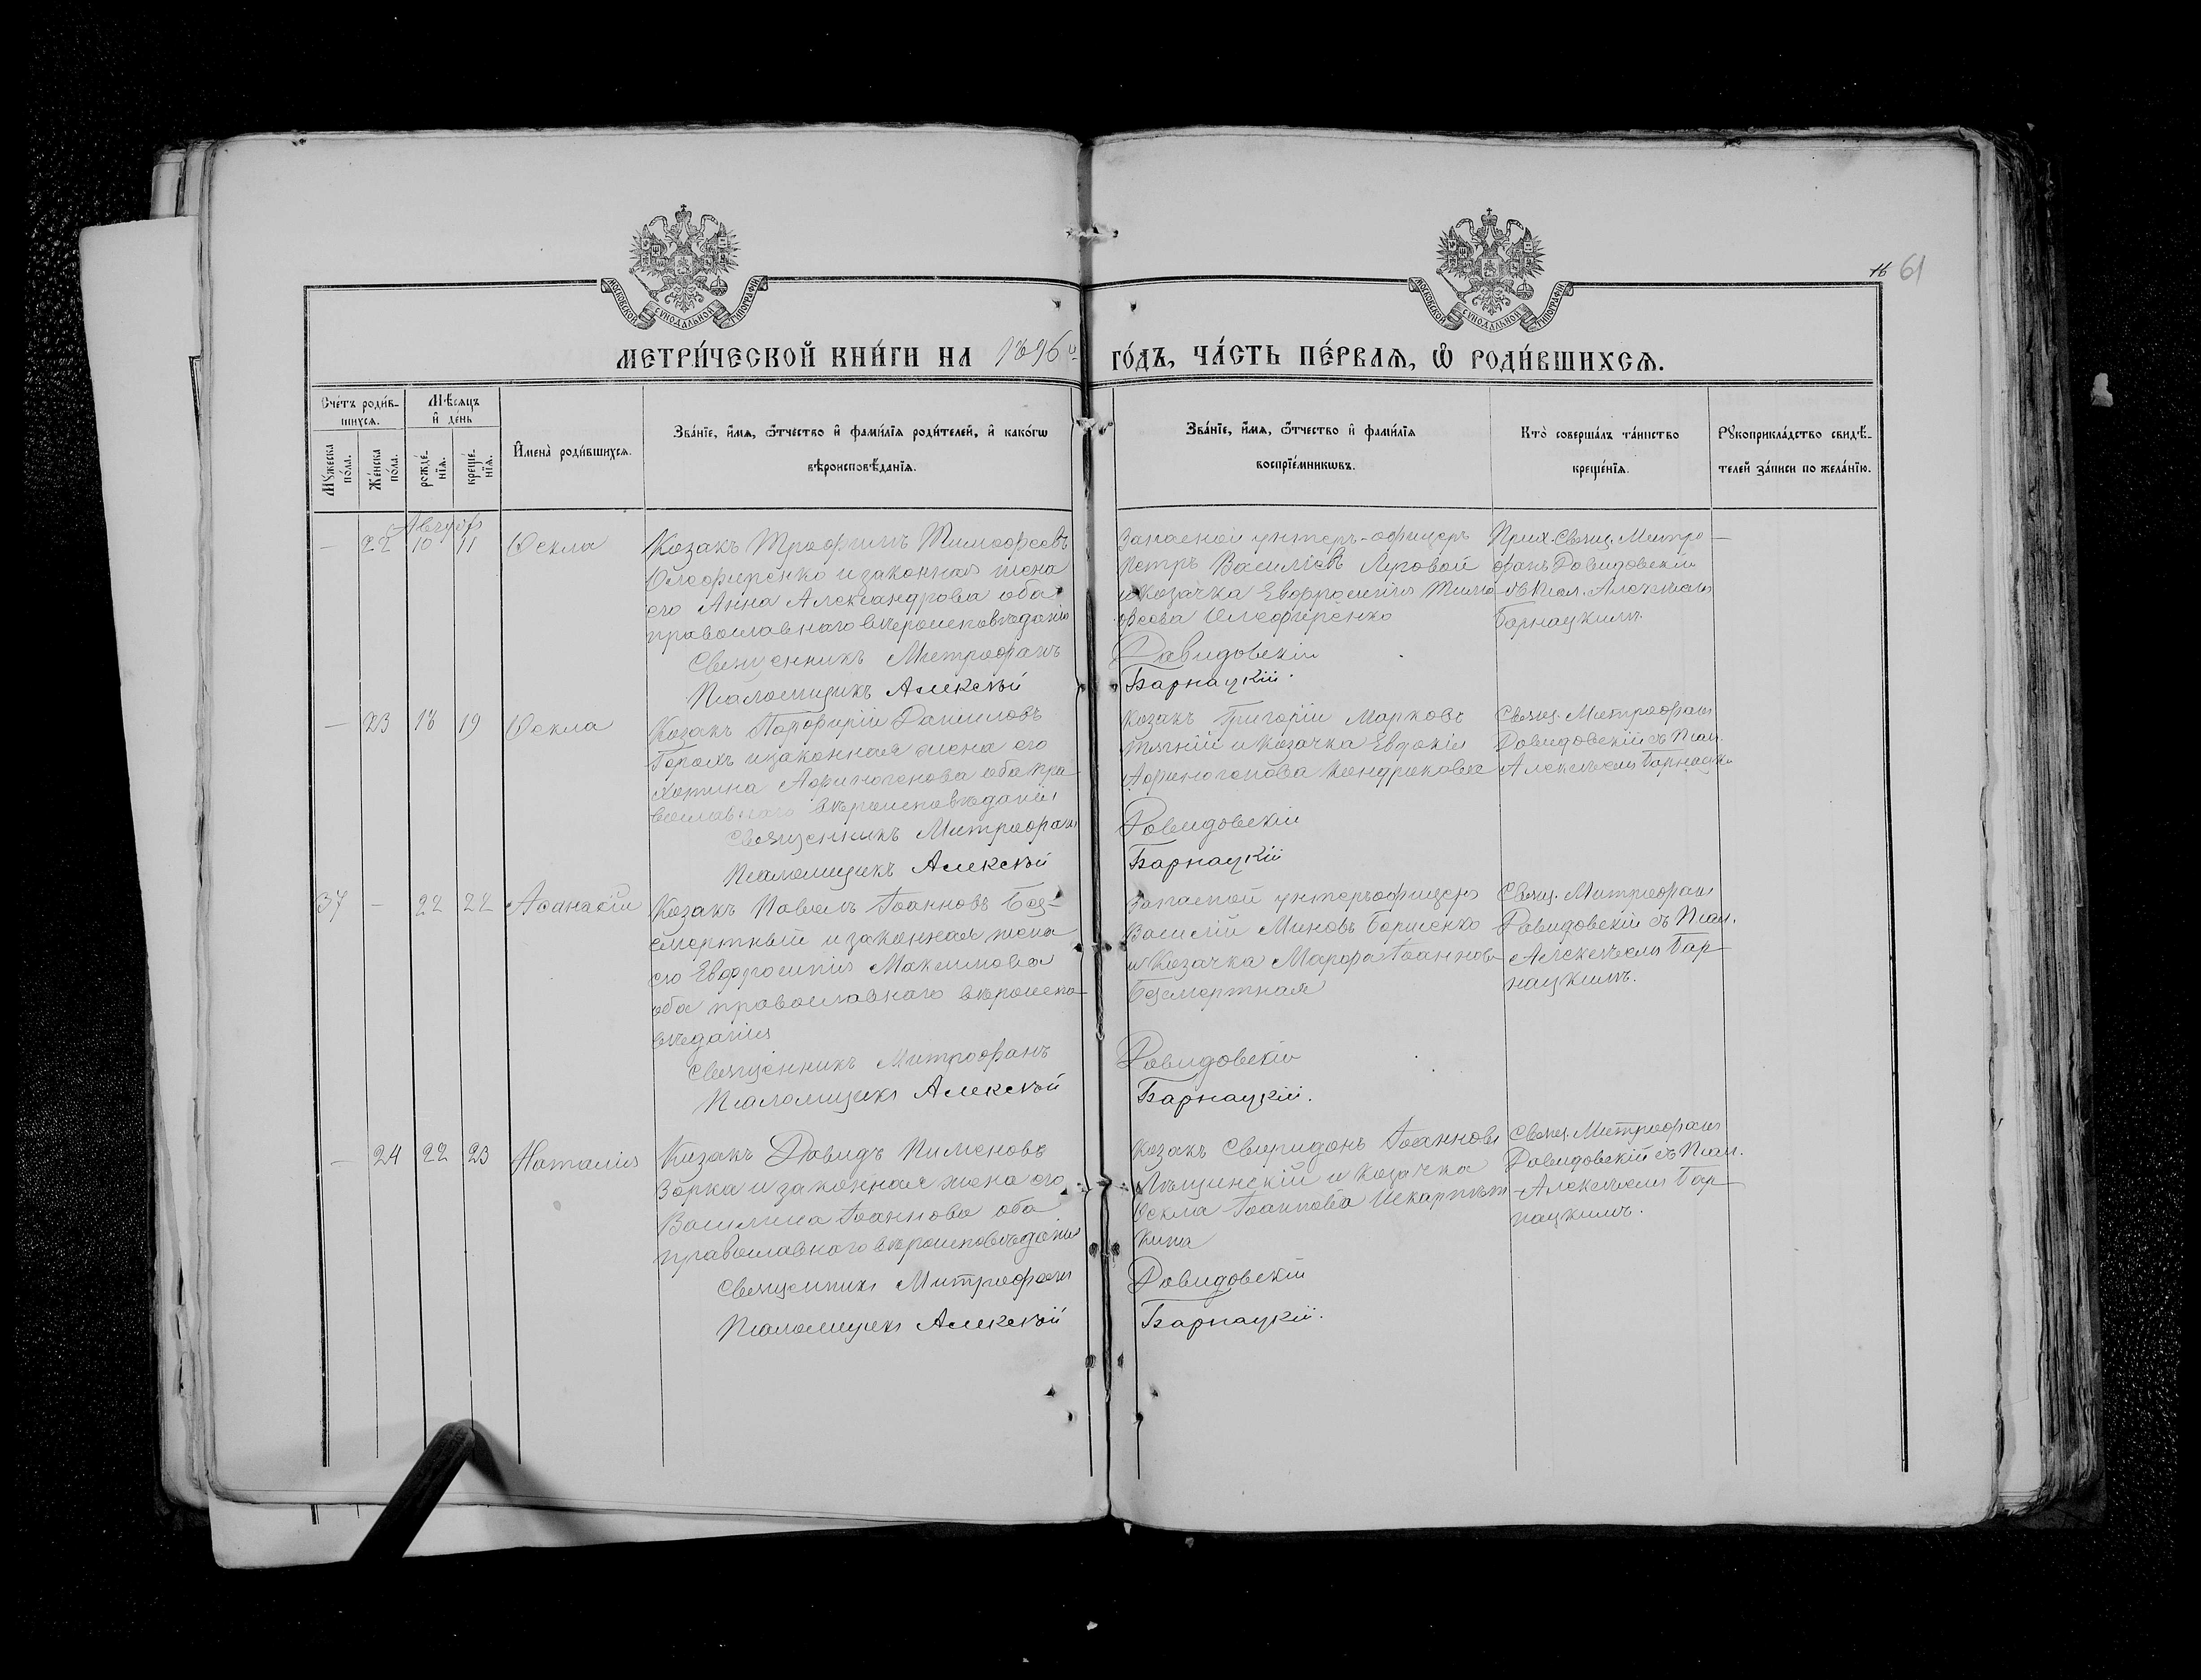 МОСКОВСКОЙ СУНОДАЛЬНОЙ ТИПОГРАФІИ
МОСКОВСКОЙ СУНОДАЛЬНОЙ ТИПОГРАФІИ
16 61
МЕТРИ́ЧЕСКОЙ КНИ́ГИ НА 1896й ГО́ДЪ, ЧА́СТЬ ПЕ́РВАѦ, Ѡ РОДИ́ВШИХСѦ.
Сче́тъ роди́в-
шихсѧ.
Мѣсѧцъ
и де́нь
Мꙋ́жеска по́ла.
Же́нска по́ла.
рожде́-
нїѧ.
креще́-
нїѧ.
И҆мена̀ роди́вшихсѧ.
Зва́нїе, и҆́мѧ, ѻ҆́тчество и҆ фами́лїѧ роди́телей, и҆ како́гѡ
вѣроисповѣ́данїѧ.
Зва́нїе, и҆́мѧ, ѻ҆́тчество и҆ фами́лїѧ
воспрїе́мникѡвъ.
Кто̀ соверша́лъ та́инство
креще́нїѧ.
Рꙋкоприкла́дство свидѣ́-
телей за́писи по жела́нїю.
Августъ
— 22 10 11 Ѳекла
Козакъ Трофимъ Тимофеевъ
Олефиренко и законная жена
его Анна Александрова оба
православнаго вѣроисповѣданія
Священникъ Митрофанъ
Псаломщикъ Алексѣй
Запасной унтеръ-офицеръ
Петръ Василіевъ Луговой
и козачка Евфросинія Тимо
феева Олефиренко
Давидовскій
Барнацкій.
Прих. Священ. Митро-
фанъ Давидовскій
съ Псал. Алексѣемъ
Барнацкимъ.
— 23 18 19 Ѳекла
Козакъ Порфирій Даниловъ
Горохъ и законная жена его
Хотина Афиногенова оба пра
вославнаго вѣроисповѣданія
Священникъ Митрофанъ
Псаломщикъ Алексѣй
Козакъ Григорій Марковъ
Тягній и козачка Евдокія
Афиногенова Кондракова
Давидовскій
Барнацкій
Свящ. Митрофанъ
Давидовскій съ Псал.
Алексѣемъ Барнацки
37 — 22 22 Аѳанасій
Козакъ Павелъ Іоанновъ Без-
смертный и законная жена
его Евфросинія Максимова
оба православнаго вѣроиспо-
вѣданія
Священникъ Митрофанъ
Псаломщикъ Алексѣй
Запасной унтеръофицеръ
Василій Миновъ Борисенко
и Козачка Марфа Іоаннова
Безсмертная
Давидовскій
Барнацкій.
Свящ. Митрофанъ
Давидовскій съ Псал.
Алексѣемъ Бар-
нацкимъ.
— 24 22 23 Наталія
Козакъ Давидъ Пименовъ
Зорка и законная жена его
Василиса Іоаннова оба
православнаго вѣроисповѣданія
Священникъ Митрофанъ
Псаломщикъ Алексѣй
Козакъ Свиридонъ Іоанновъ
Лѣщинскій и козачка
Ѳекла Іоаннова
кина
Давидовскій
Барнацкій.
Свящ. Митрофанъ
Давидовскій съ Псал.
Алексѣемъ Бар-
нацкимъ.